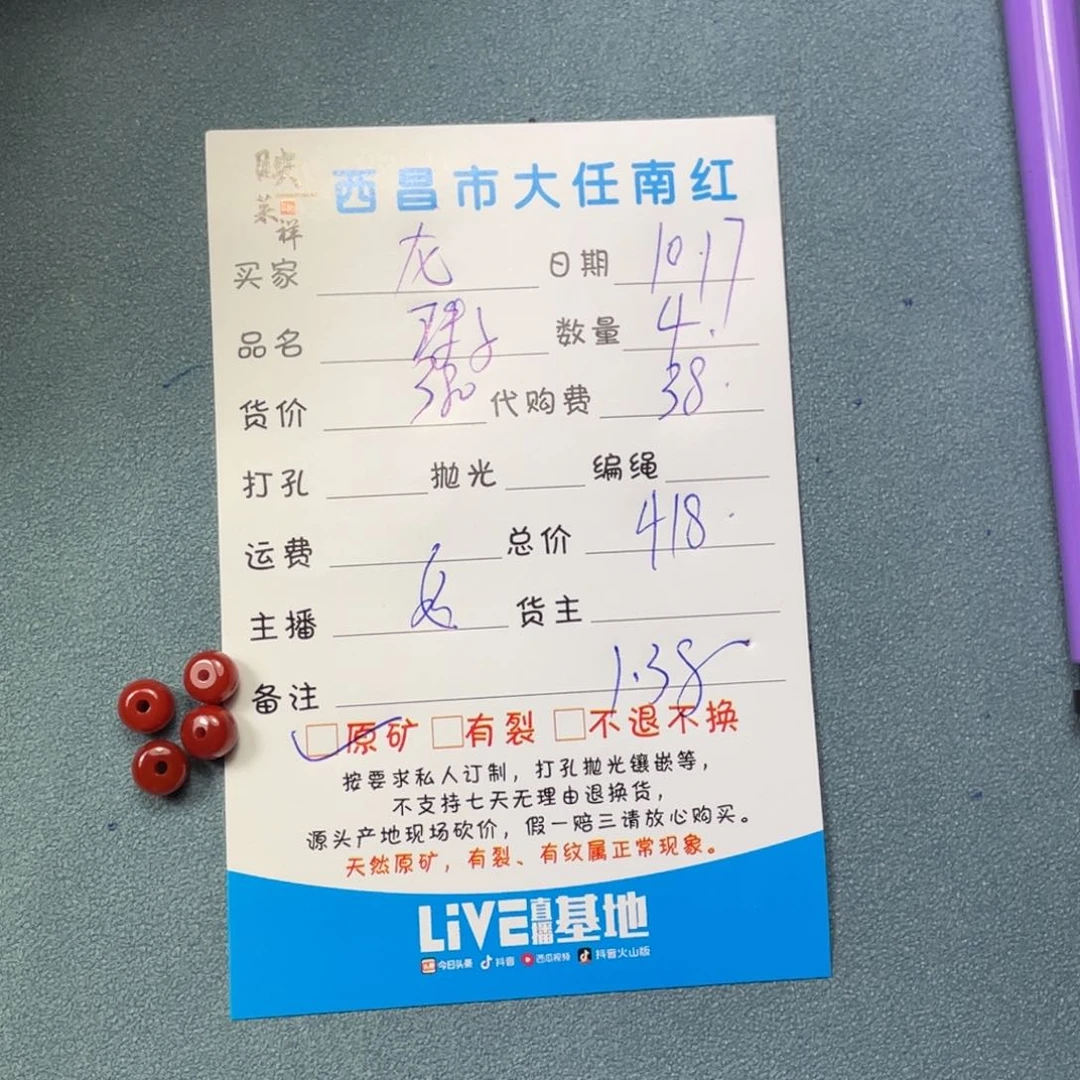 映莱祥
西昌市大任南红
买家 龙 日期 10.17
品名 珠子 数量 4.
货价 380 代购费 38.
打孔 抛光 编绳
运费 总价 418.
主播 货主
备注 1.38
原矿 有裂 不退不换
按要求私人订制，打孔抛光镶嵌等，
不支持七天无理由退换货，
源头产地现场砍价，假一赔三请放心购买。
天然原矿，有裂、有纹属正常现象。
LiVE直播基地
今日头条 抖音 西瓜视频 抖音火山版